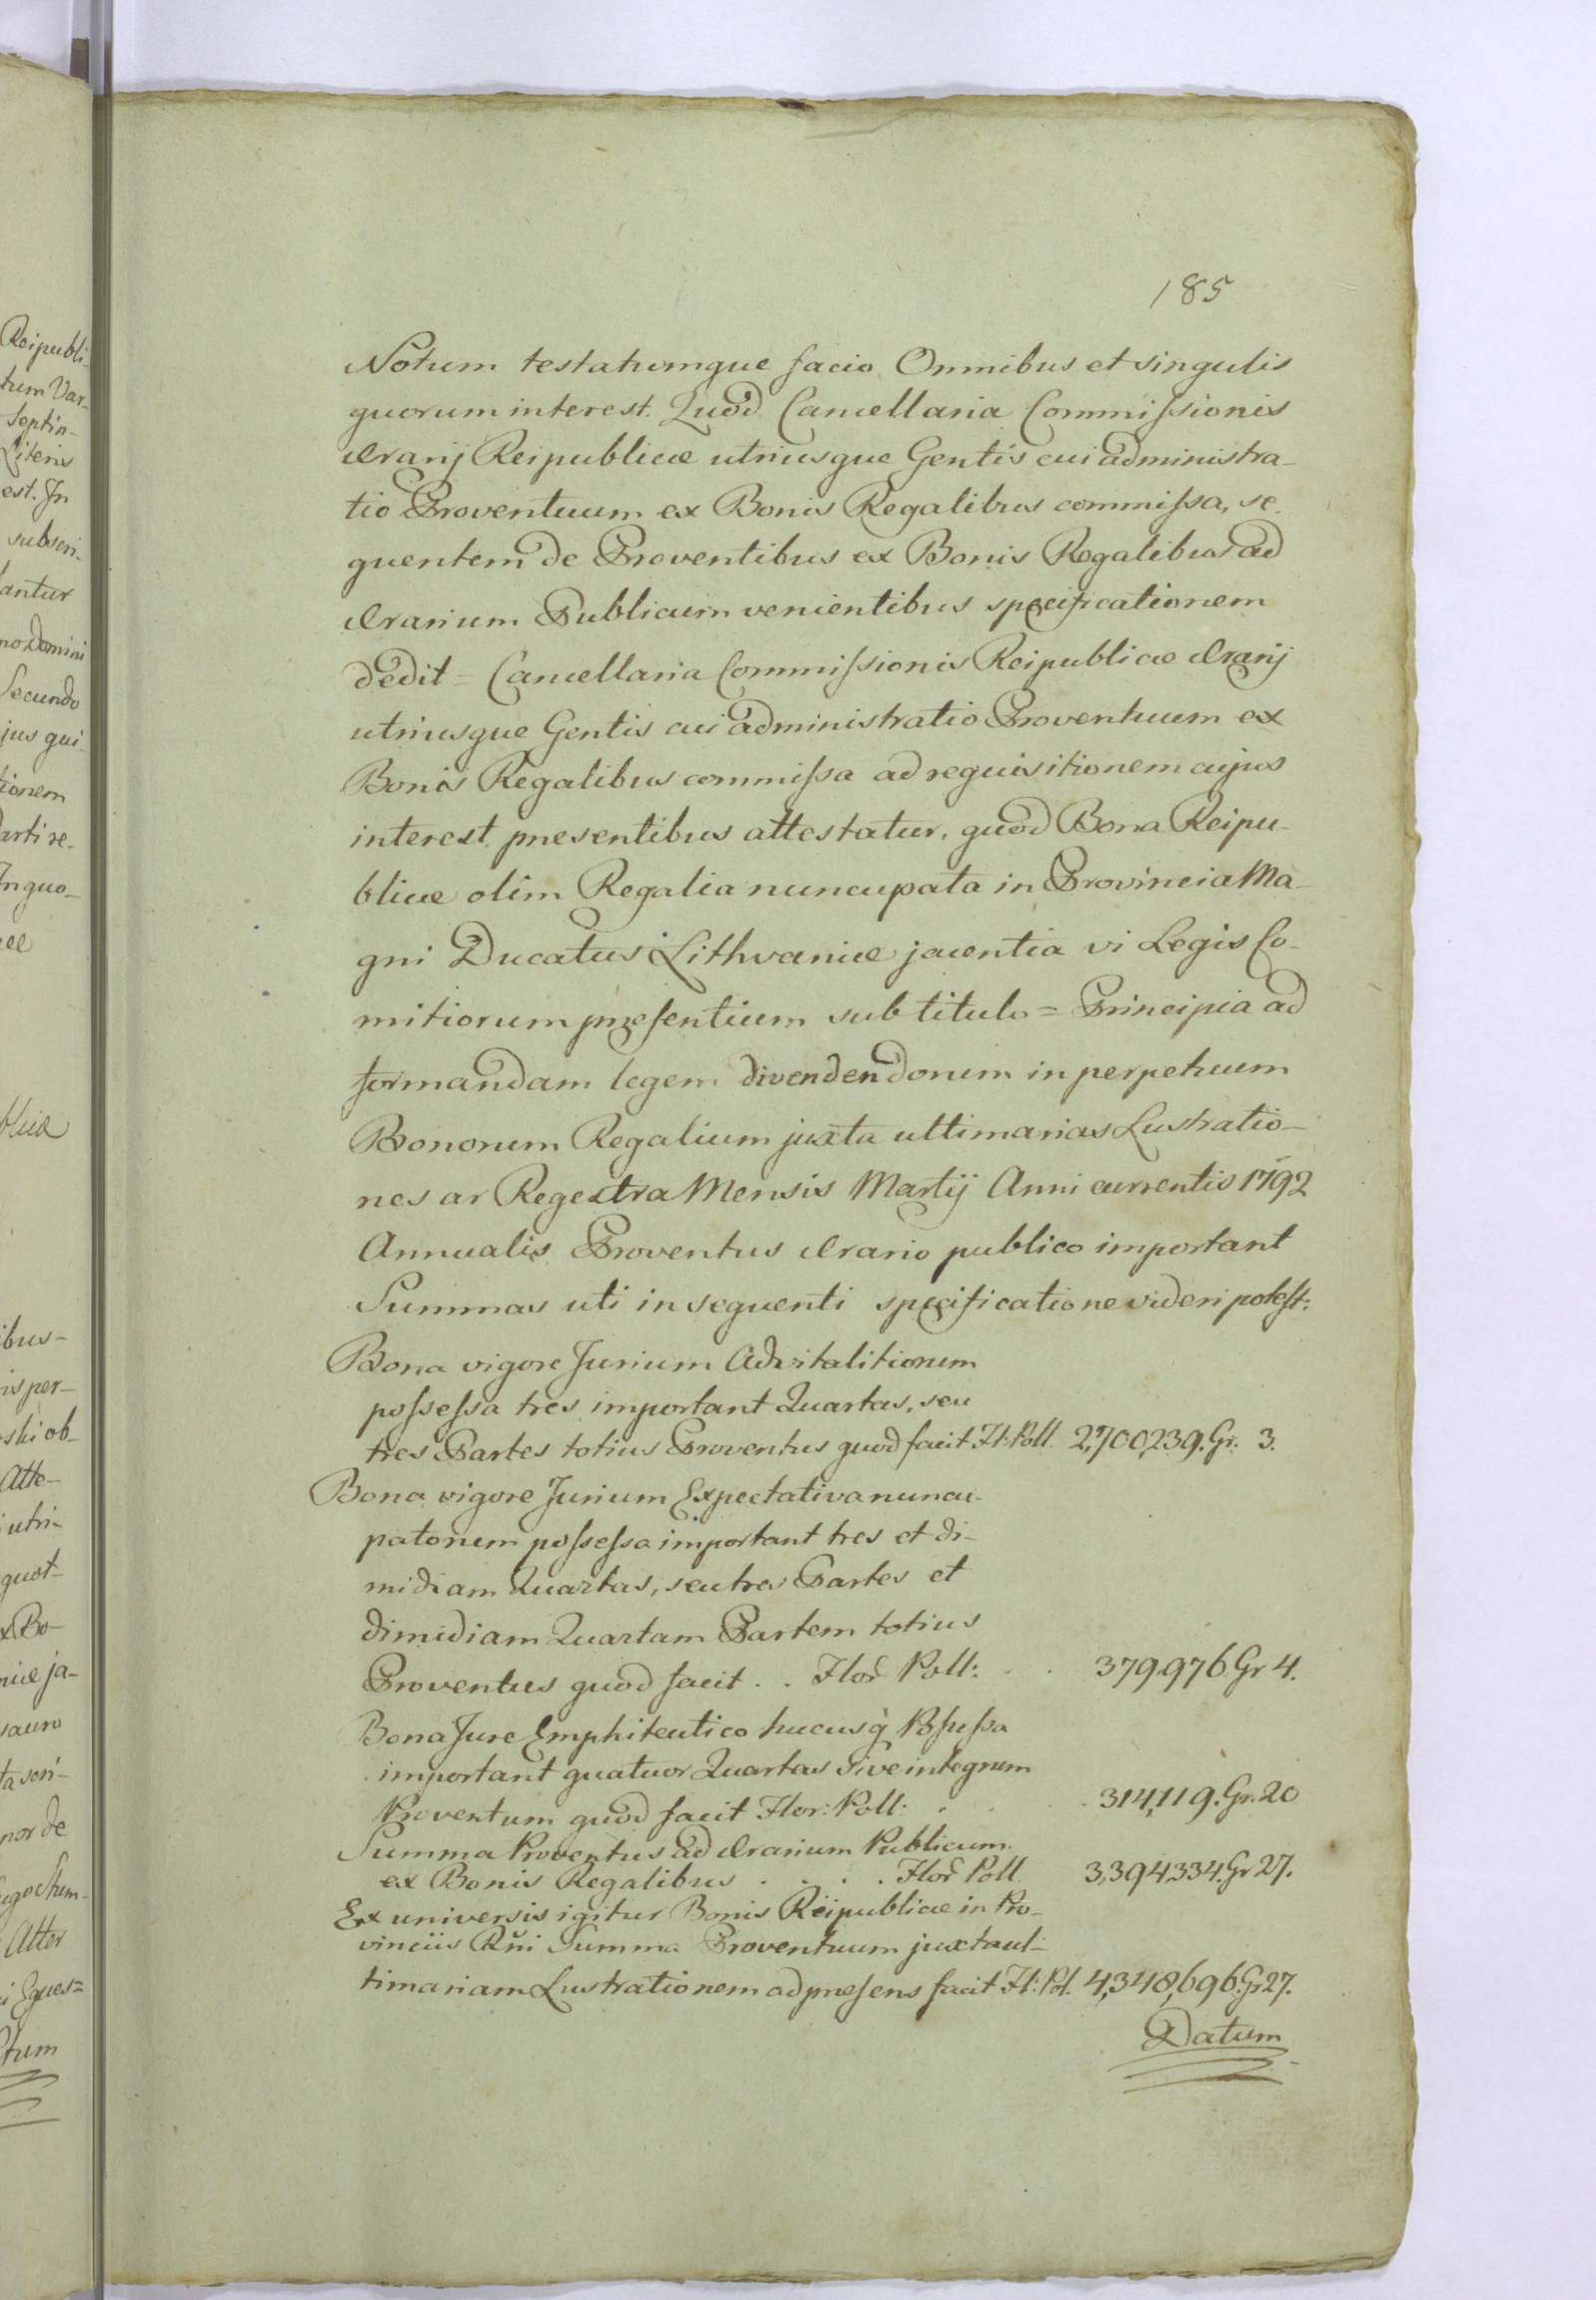 185
Notum testatumque facio Omnibus et singulis
quorum interest. Quod Cancellaria Commissionis
Ærarij Reipublicæ utriusque Gentis cui administra-
tio Proventuum ex Bonis Regalibus commissa, se-
quentem de Proventibus ex Bonis Regalibus ad
Ærarium Publicum venientibus specificationem
dedit = Cancellaria Commissionis Reipublicæ Ærarij
utriusque Gentis cui administratio Proventuum ex
Bonis Regalibus commissa ad requisitionem cujus
interest præsentibus attestatur, quod Bona Reipu-
blicæ olim Regalia nuncupata in Provincia Ma-
gni Ducatus Lithvaniæ jacentia vi Legis Co-
mitiorum præsentium sub titulo = Principia ad
formandam legem divendendorum in perpetuum
Bonorum Regalium juxta ultimarias Lustratio-
nes ac Regestra Mensis Martij Anni currentis 1792
Annualis Proventus Ærario publico important
Summas uti in sequenti specificatione videri potest:
Bona vigore Jurium Advitalitiorum
possessa tres important Quartas, seu
tres Partes totius Proventus quod facit Fl: Poll. 2,700,239. Gr. 3.
Bona vigore Jurium Expectativa nuncu-
patorum possessa important tres et di-
midiam Quartas, seu tres Partes et
dimidiam Quartam Partem totius
Proventus quod facit . . Flor Poll: . . 379,976 Gr 4.
Bona Jure Emphiteutico hucusq̀ Possessa
important quatuor Quartas Sive integrum
Proventum quod facit Flor: Poll: . . . 314,119. Gr. 20
Summa Proventus ad Ærarium Publicum
ex Bonis Regalibus . . . . Flor Poll 3,394334. Gr 27.
Ex universis igitur Bonis Reipublicæ in Pro-
vinciis Rñi Summa Proventuum juxta ul-
timariam Lustrationem ad præsens facit Fl: Pol. 4,348,696. Gr 27.
Datum